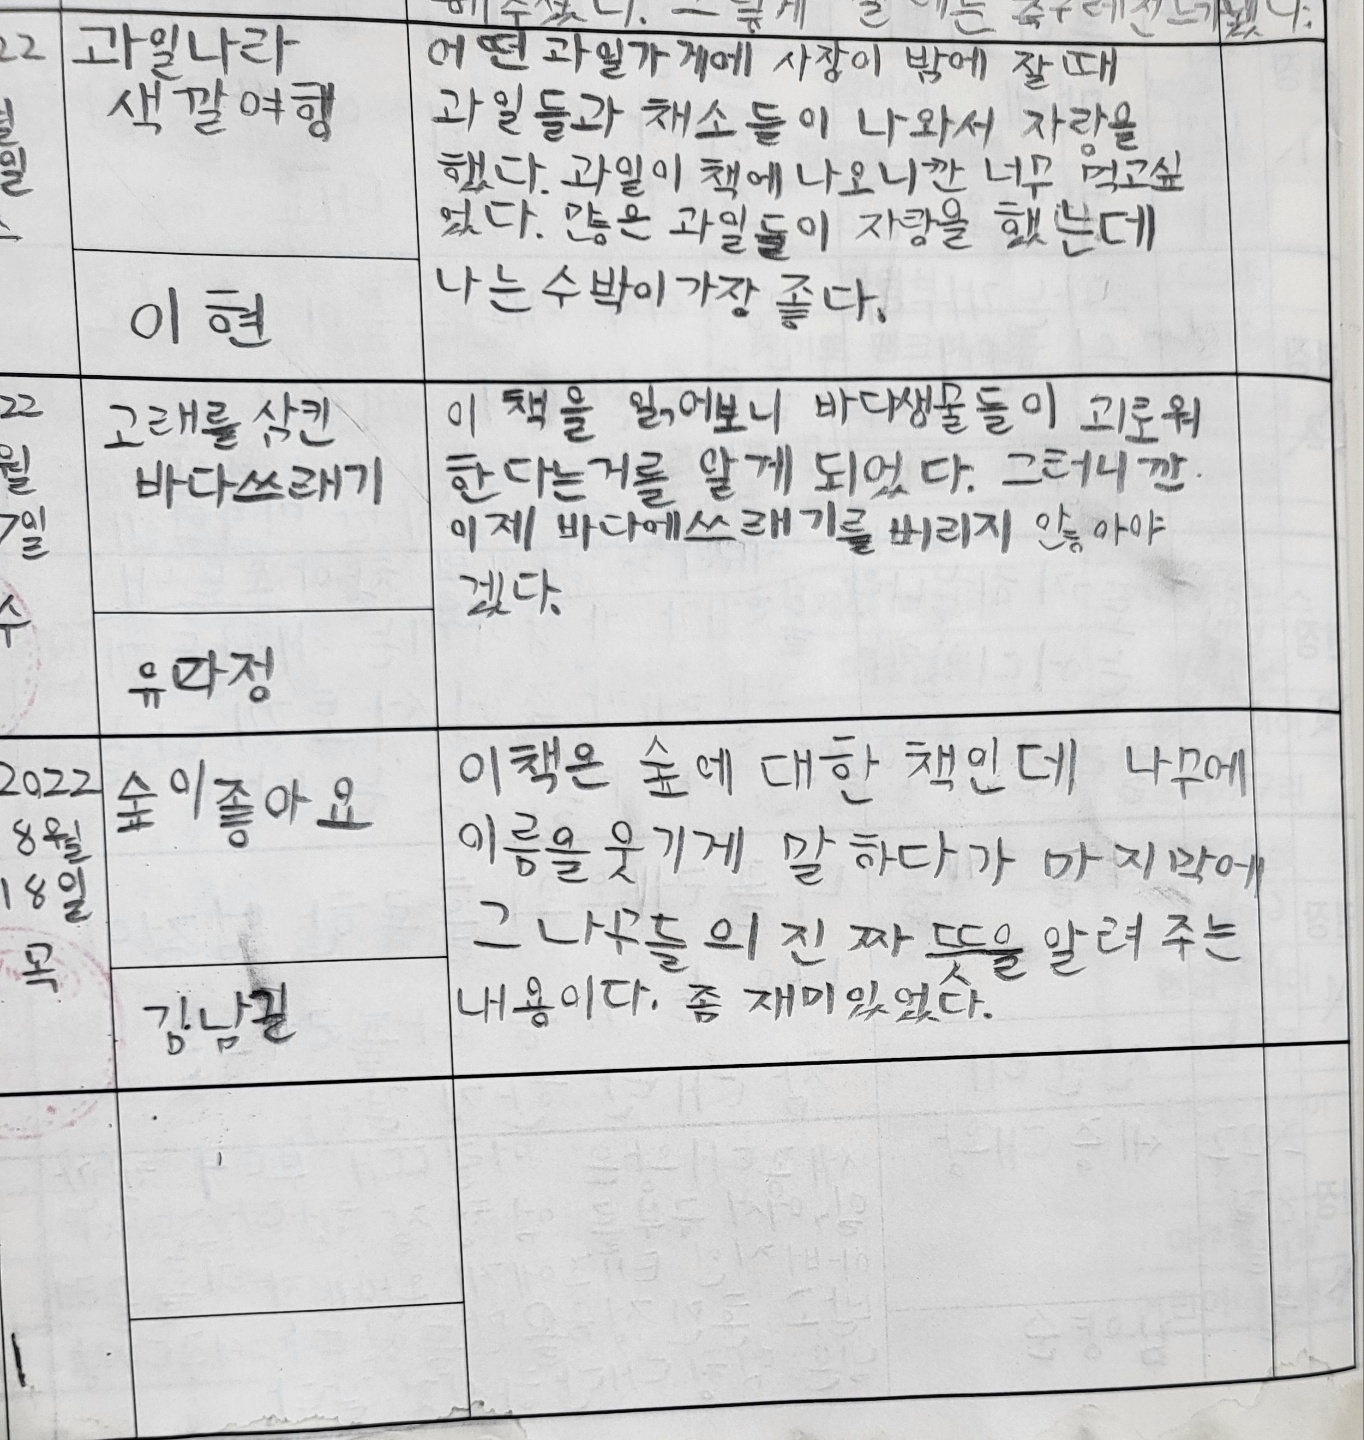 22
과일나라
색깔여행
이현
어떤 과일가게에 사장이 밖에 잘때
과일들과 채소들이 나와서 자랑을
했다. 과일이 책에 나오니깐 너무 먹고싶
었다. 많은 과일들이 자랑을 했는데
나는 수박이 가장 좋다.
22
월
7일
수
고래를 삼킨
바다쓰래기
유다정
이 책을 읽어보니 바다생물들이 괴로워
한다는거를 알게 되었다. 그러니깐
이제 바다에쓰래기를 버리지 않아야
겠다.
2022
8월
18일
목
숲이좋아요
김남길
이책은 숲에 대한 책인데 나무에
이름을 웃기게 말하다가 마지막에
그 나무들의 진짜 뜻을 알려 주는
내용이다. 좀 재미있었다.